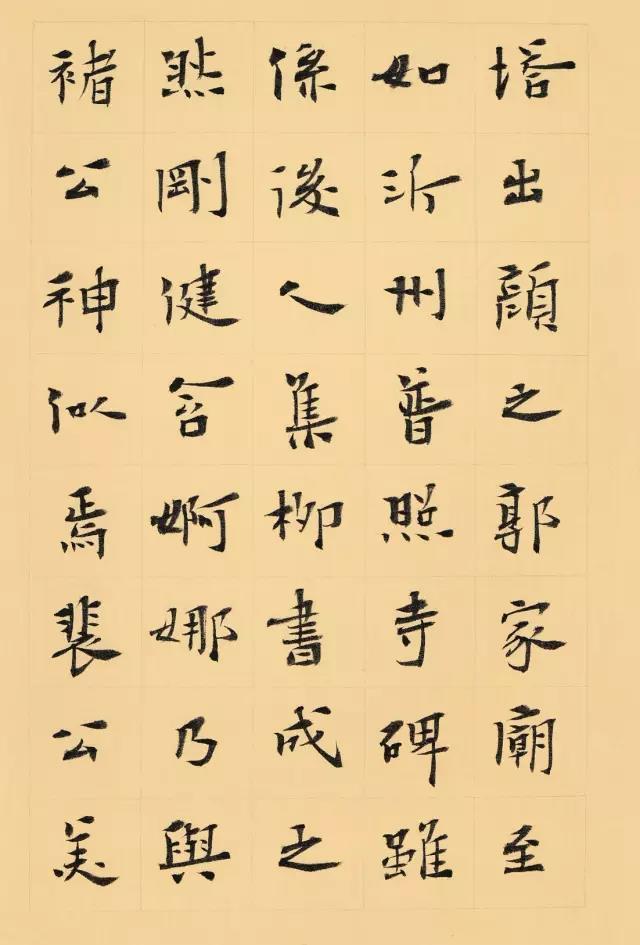 塔出顏之郭家廟至
如沂州普照寺碑雖
係後人集柳書成之
然剛健含婀娜乃與
褚公神似焉裴公美